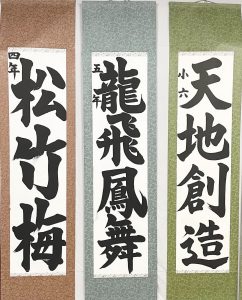 四年
松竹梅
五年
龍飛鳳舞
小六
天地創造